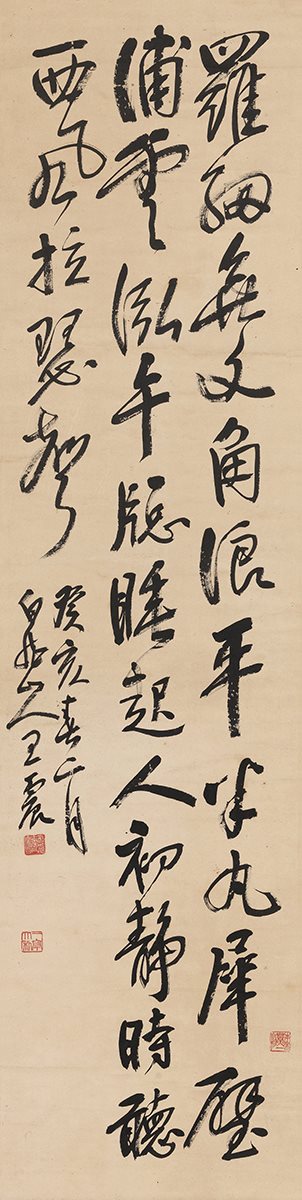 羅細無文角浪平半丸犀璧
浦雲泓午牕睡起人初靜時聽
西風拉瑟聲
癸亥春二月
白龍山人王震